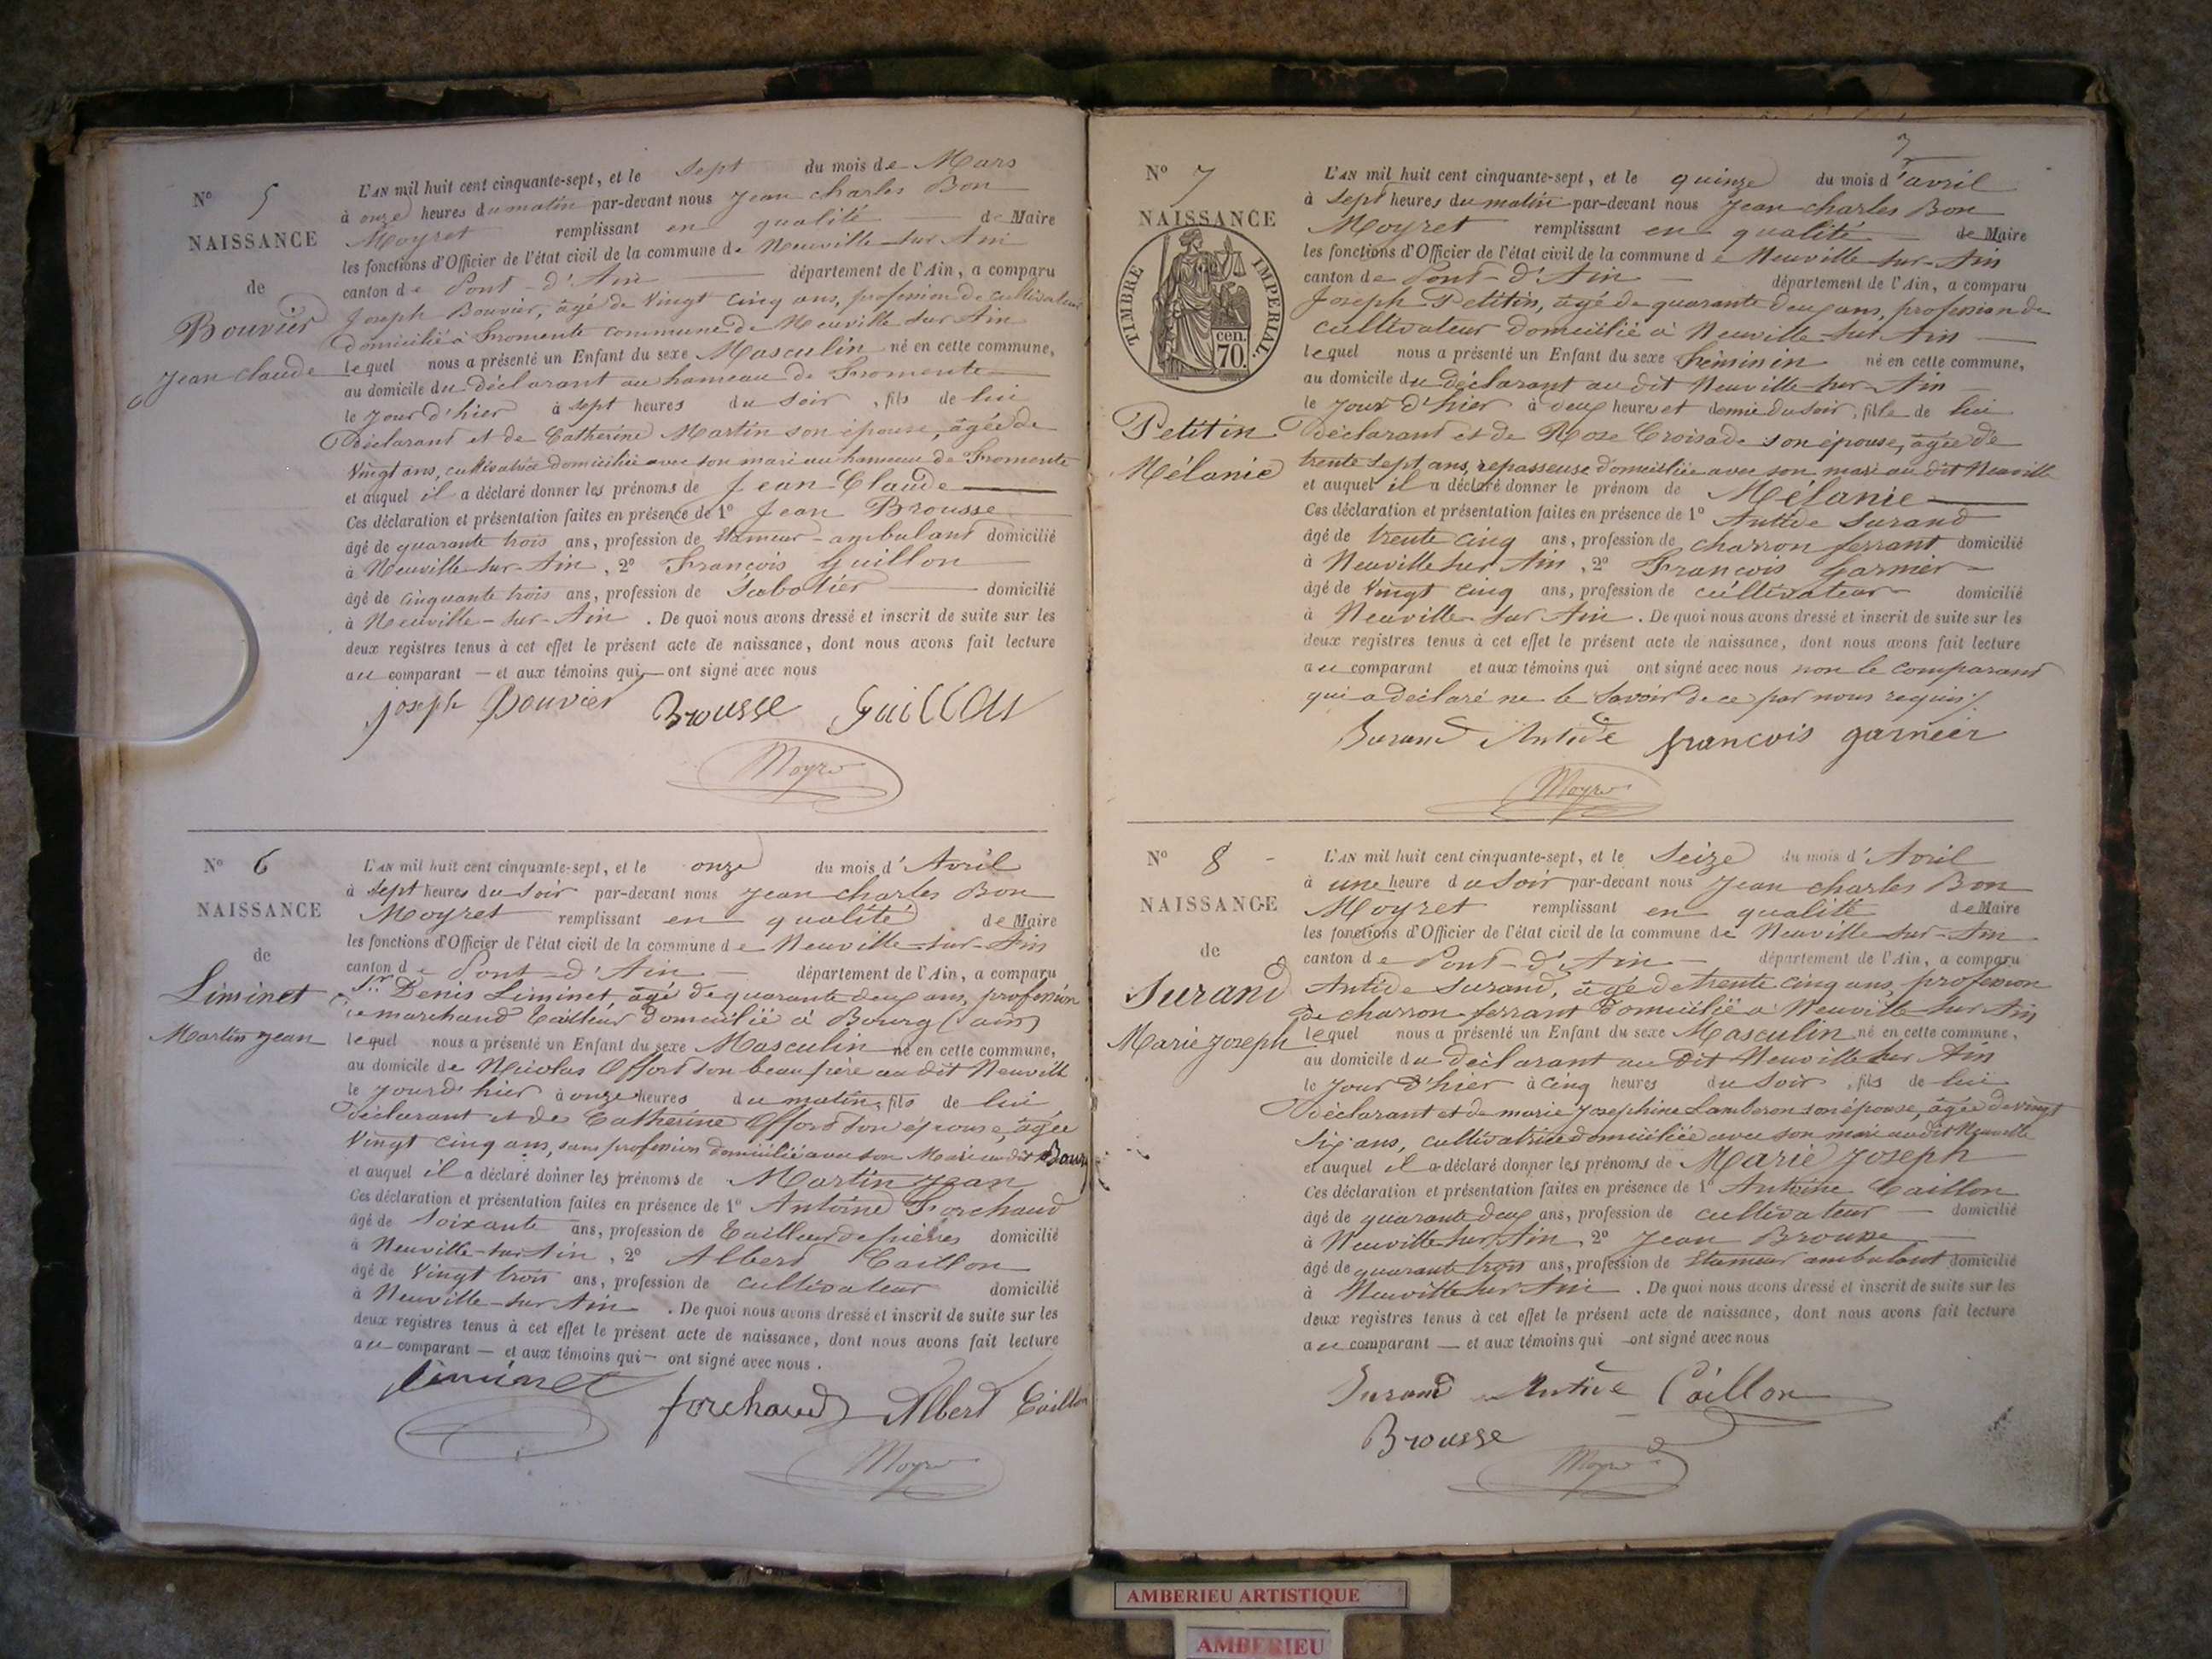 N° 5
NAISSANCE
de
Bouvier
Jean Claude
L'AN mil huit cent cinquante-sept, et le sept du mois de Mars
à onze heures du matin par-devant nous Jean charles Bon
Moyret remplissant en qualité de Maire
les fonctions d'Officier de l'état civil de la commune de Neuville sur Ain
canton de Pont-d'Ain département de l'Ain, a comparu
Joseph Bouvier, âgé de vingt cinq ans, profession de cultivateur
domicilié à Fromente commune de Neuville sur Ain
lequel nous a présenté un Enfant du sexe Masculin né en cette commune,
au domicile du déclarant au hameau de Fromente
le jour d'hier à sept heures du soir, fils de lui
déclarant et de Catherine Martin son épouse, âgée de
vingt ans, cultivatrice domiciliée avec son mari au hameau de Fromente
et auquel il a déclaré donner les prénoms de Jean-Claude
Ces déclaration et présentation faites en présence de 1° Jean Brousse
âgé de quarante trois ans, profession de étameur-ambulant domicilié
à Neuville-sur-Ain, 2° François Guillon
âgé de cinquante trois ans, profession de Sabotier domicilié
à Neuville-sur-Ain. De quoi nous avons dressé et inscrit de suite sur les
deux registres tenus à cet effet le présent acte de naissance, dont nous avons fait lecture
au comparant — et aux témoins qui — ont signé avec nous
joseph Bouvier Brousse Guillon
Moyret
N° 6
NAISSANCE
de
Liminet
Martin Jean
L'AN mil huit cent cinquante-sept, et le onze du mois d'Avril
à sept heures du soir par-devant nous Jean charles Bon
Moyret remplissant en qualité de Maire
les fonctions d'Officier de l'état civil de la commune de Neuville-sur-Ain
canton de Pont-d'Ain département de l'Ain, a comparu
Sr. Denis Liminet âgé de quarante deux ans, profession
de marchand tailleur domicilié à Bourg (ain)
lequel nous a présenté un Enfant du sexe Masculin né en cette commune,
au domicile de Nicolas Offord son beau père au dit Neuville
le jour d'hier à onze heures du matin, fils de lui
déclarant et de Catherine Offord son épouse, âgée
vingt cinq ans, sans profession domiciliée avec son Mari au dit Bourg
et auquel il a déclaré donner les prénoms de Martin Jean
Ces déclaration et présentation faites en présence de 1° Antoine Forchaud
âgé de soixante ans, profession de tailleur de pierres domicilié
à Neuville-sur Ain, 2° Albert Caillon
âgé de vingt trois ans, profession de cultivateur domicilié
à Neuville-sur Ain. De quoi nous avons dressé et inscrit de suite sur les
deux registres tenus à cet effet le présent acte de naissance, dont nous avons fait lecture
au comparant — et aux témoins qui — ont signé avec nous.
Liminet forchaud Albert Caillon
Moyret
7
N° 7
NAISSANCE
TIMBRE IMPERIAL.
cen.
70.
Petitin
Mélanie
L'AN mil huit cent cinquante-sept, et le quinze du mois d'avril
à sept heures du matin par-devant nous Jean charles Bon
Moyret remplissant en qualité de Maire
les fonctions d'Officier de l'état civil de la commune de Neuville sur-Ain
canton de Pont-d'Ain département de l'Ain, a comparu
Joseph Petitin, âgé de quarante deux ans, profession de
cultivateur domicilié à Neuville-sur Ain
lequel nous a présenté un Enfant du sexe féminin né en cette commune,
au domicile du déclarant au dit Neuville-sur-Ain
le jour d'hier à deux heures et demie du soir, fille de lui
déclarant et de Rose Croisade son épouse, âgée de
trente sept ans, repasseuse domiciliée avec son mari au dit Neuville
et auquel il a déclaré donner le prénom de Mélanie
Ces déclaration et présentation faites en présence de 1° Antide Surand
âgé de trente cinq ans, profession de charron ferrant domicilié
à Neuville sur Ain, 2° François Garnier
âgé de vingt cinq ans, profession de cultivateur domicilié
à Neuville-sur Ain. De quoi nous avons dressé et inscrit de suite sur les
deux registres tenus à cet effet le présent acte de naissance, dont nous avons fait lecture
au comparant et aux témoins qui ont signé avec nous non le comparant
qui a déclaré ne le savoir de ce par nous requis.
Surand Antide francois garnier
Moyret
N° 8
NAISSANCE
de
Surand
Marie Joseph
L'AN mil huit cent cinquante-sept, et le Seize du mois d'Avril
à une heure du soir par-devant nous Jean charles Bon
Moyret remplissant en qualité de Maire
les fonctions d'Officier de l'état civil de la commune de Neuville sur-Ain
canton de Pont-d'Ain département de l'Ain, a comparu
Antide Surand, âgé de trente cinq ans, profession
de charron ferrant domicilié à Neuville sur Ain
lequel nous a présenté un Enfant du sexe Masculin né en cette commune,
au domicile du déclarant au dit Neuville sur Ain
le jour d'hier à cinq heures du soir, fils de lui
déclarant et de marie Josephine Lamberon son épouse, âgée de vingt
six ans, cultivatrice domiciliée avec son mari au dit Neuville
et auquel il a déclaré donner les prénoms de Marie Joseph
Ces déclaration et présentation faites en présence de 1° Antoine Caillon
âgé de quarante deux ans, profession de cultivateur domicilié
à Neuville sur Ain, 2° Jean Brousse
âgé de quarante trois ans, profession de Etameur ambulant domicilié
à Neuville sur Ain. De quoi nous avons dressé et inscrit de suite sur les
deux registres tenus à cet effet le présent acte de naissance, dont nous avons fait lecture
au comparant — et aux témoins qui ont signé avec nous
Surand Antide Caillon
Brousse
Moyret
AMBERIEU ARTISTIQUE
AMBERIEU